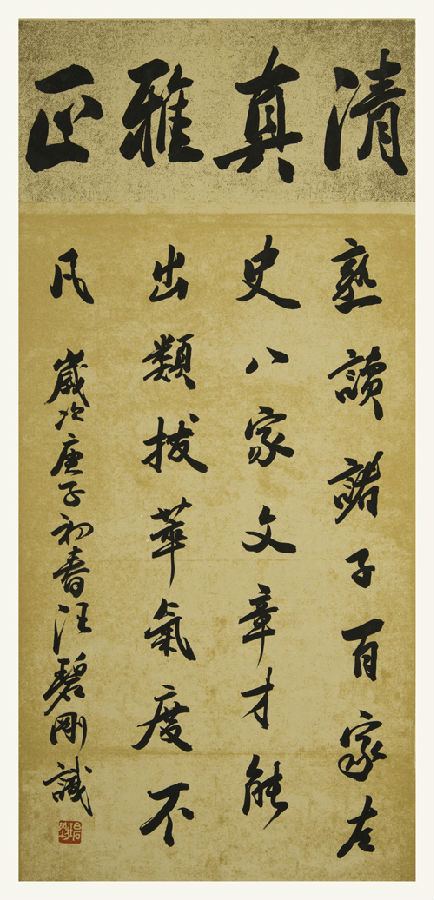 清真雅正
熟讀諸子百家左
史八家文章才能
出類拔萃氣度不
凡 歲次庚子初春汪碧剛識